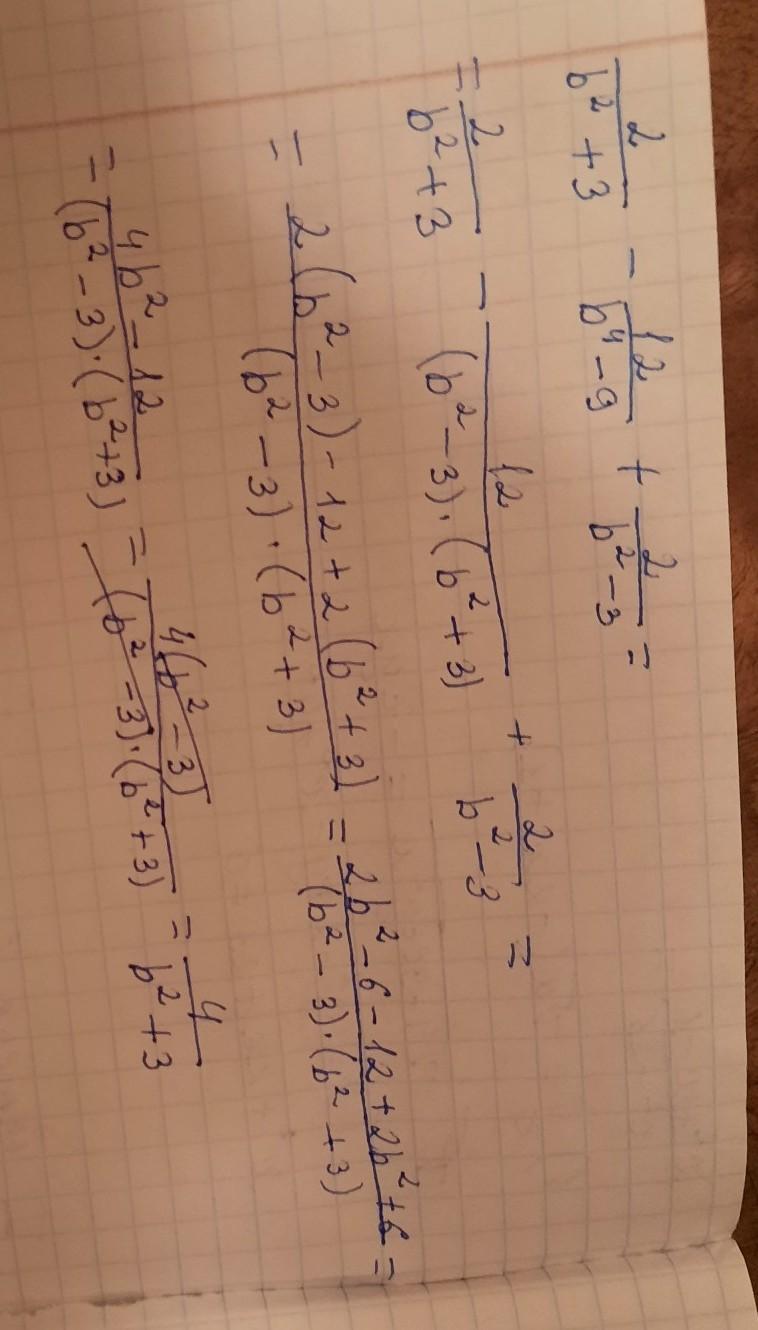 2/(b² + 3) - 12/(b⁴ - 9) + 2/(b² - 3) =
= 2/(b² + 3) - 12/((b² - 3)·(b² + 3)) + 2/(b² - 3) =
= (2(b² - 3) - 12 + 2(b² + 3))/((b² - 3)·(b² + 3)) = (2b² - 6 - 12 + 2b² + 6)/((b² - 3)·(b² + 3)) =
= (4b² - 12)/((b² - 3)·(b² + 3)) = 4(b² - 3)/((b² - 3)·(b² + 3)) = 4/(b² + 3)